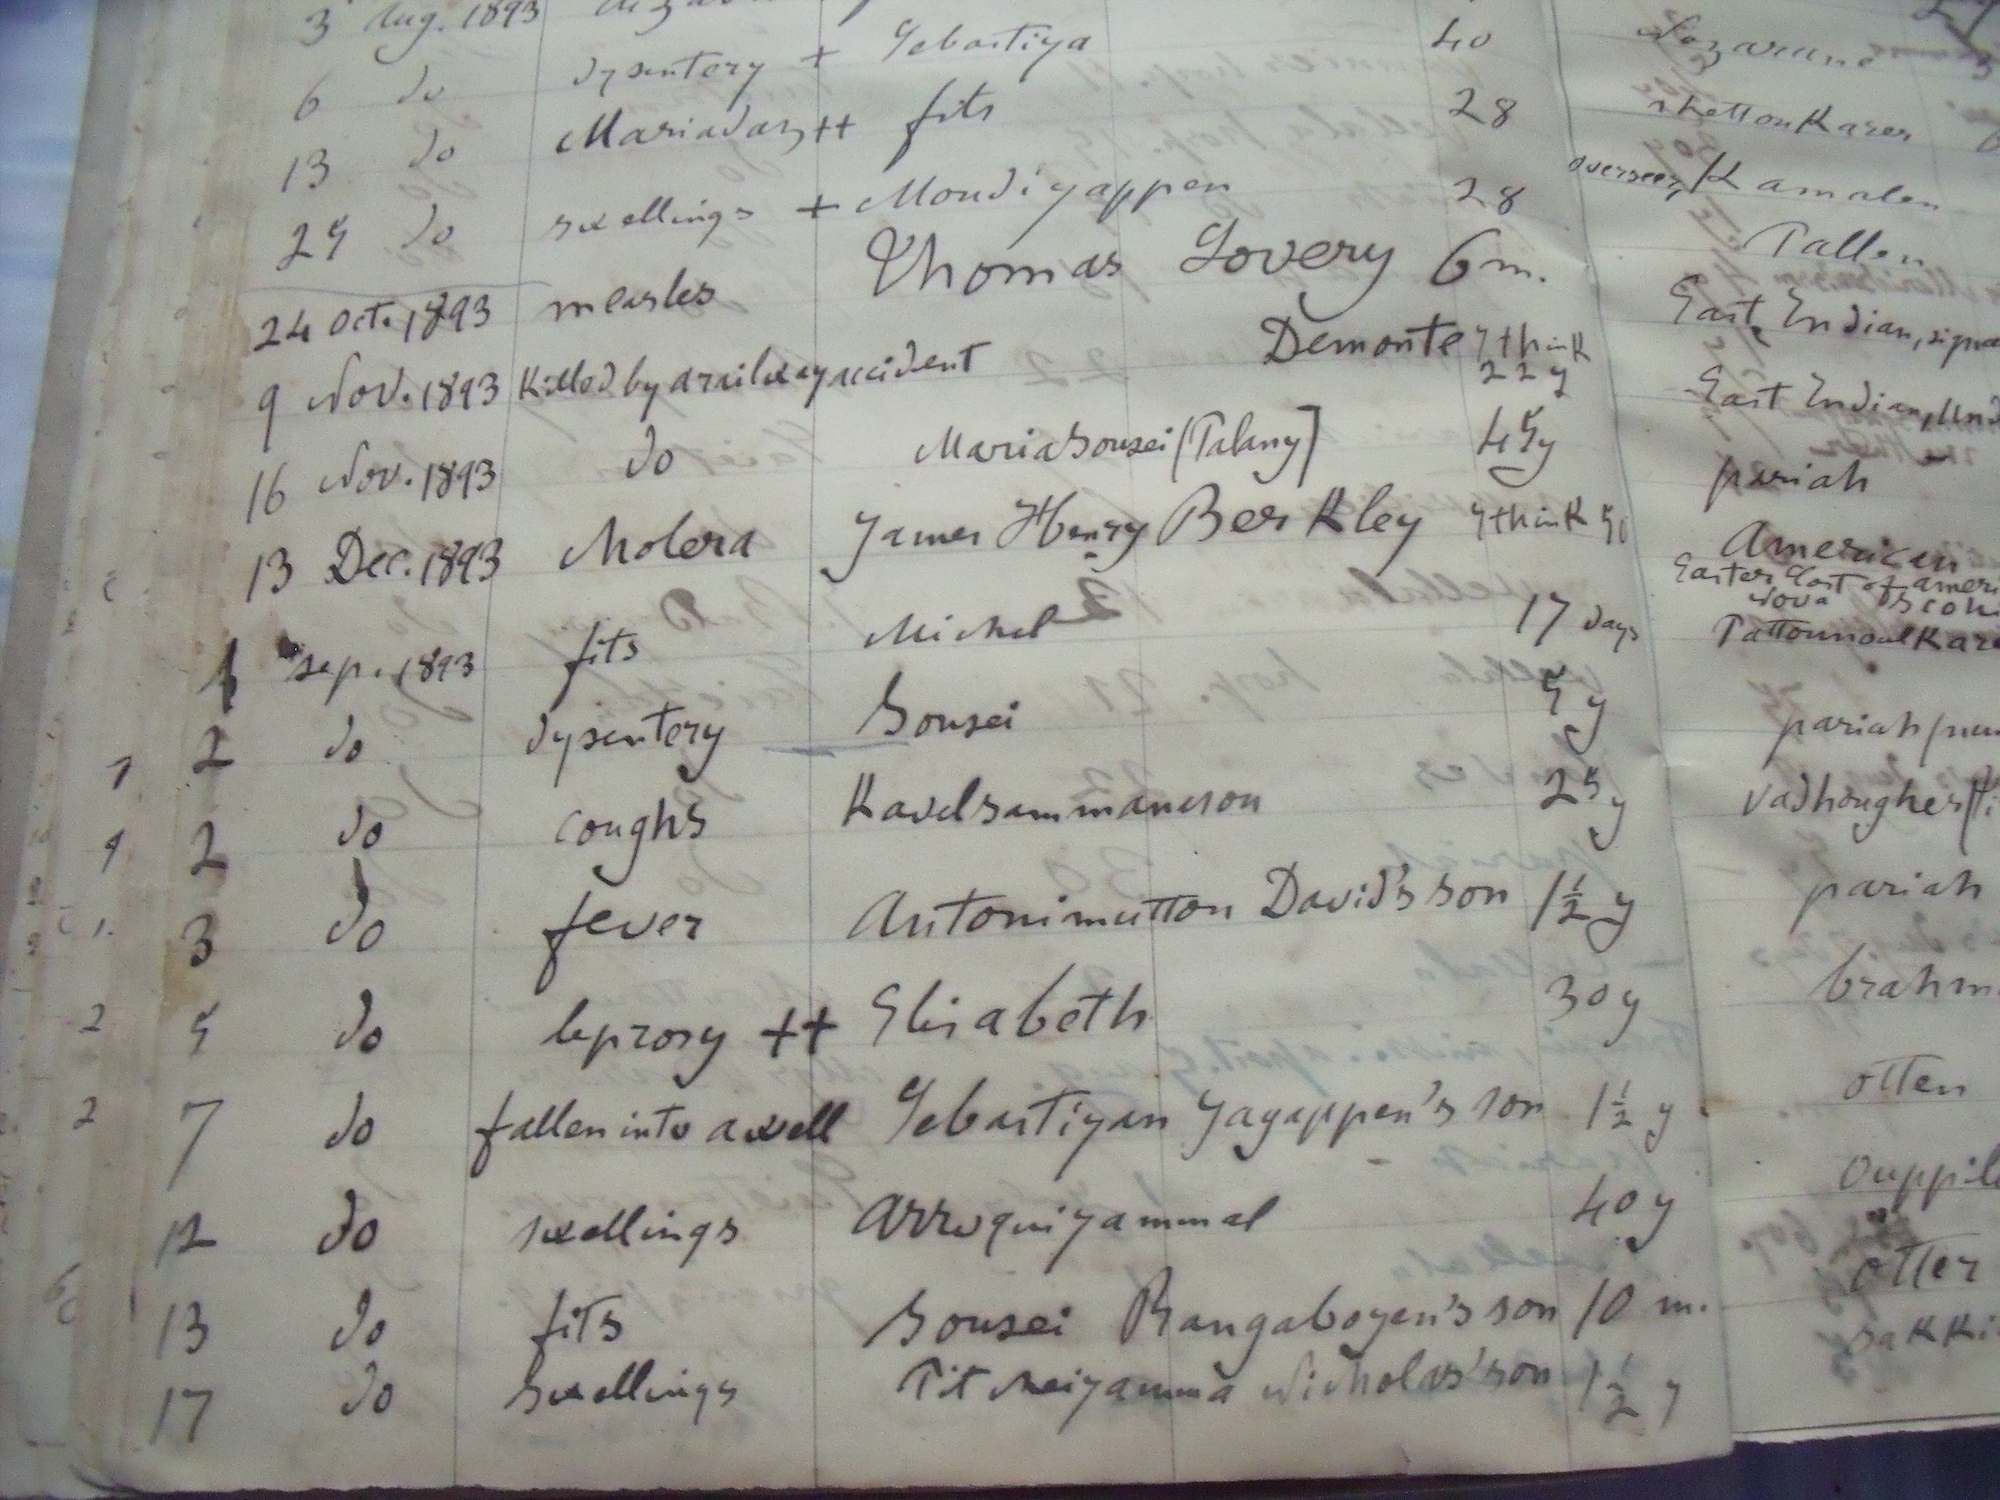 3 Aug. 1893
6 do dysentery + Sebastiya 40 Lazarene
13 do Mariadas ++ fits 28 shettonkarer
25 do swellings + Moudiyappen 28 overseer, Kamalen
24 Oct. 1893 measles Thomas Lovery 6 m. Pallen
9 Nov. 1893 Killed by a railway accident Demonte I think 22 y East Indian, signa
16 Nov. 1893 do Maria Sousei (Palany) 45 y East Indian, Und
pariah
13 Dec. 1893 cholera James Henry Berkley I think 50 American
Easter Cost of ameri
Nova Scoti
1 sep. 1893 fits Michel 17 days Pattounoulkare
2 do dysentery Sousei 5 y pariah
2 do coughs Kavelsammaneson 25 y vadhougher
3 do fever Antonimutton David's son 1½ y pariah
5 do leprosy ++ Elisabeth 30 y brahm
7 do fallen into a well Sebastiyan Yagappen's son 1½ y otten
12 do swellings Arroquiyammal 40 y Ouppil
13 do fits Sousei Rangaboyen's son 10 m. otter
17 do swellings Pitcheiyamma Nicholas' son 1½ y sakki